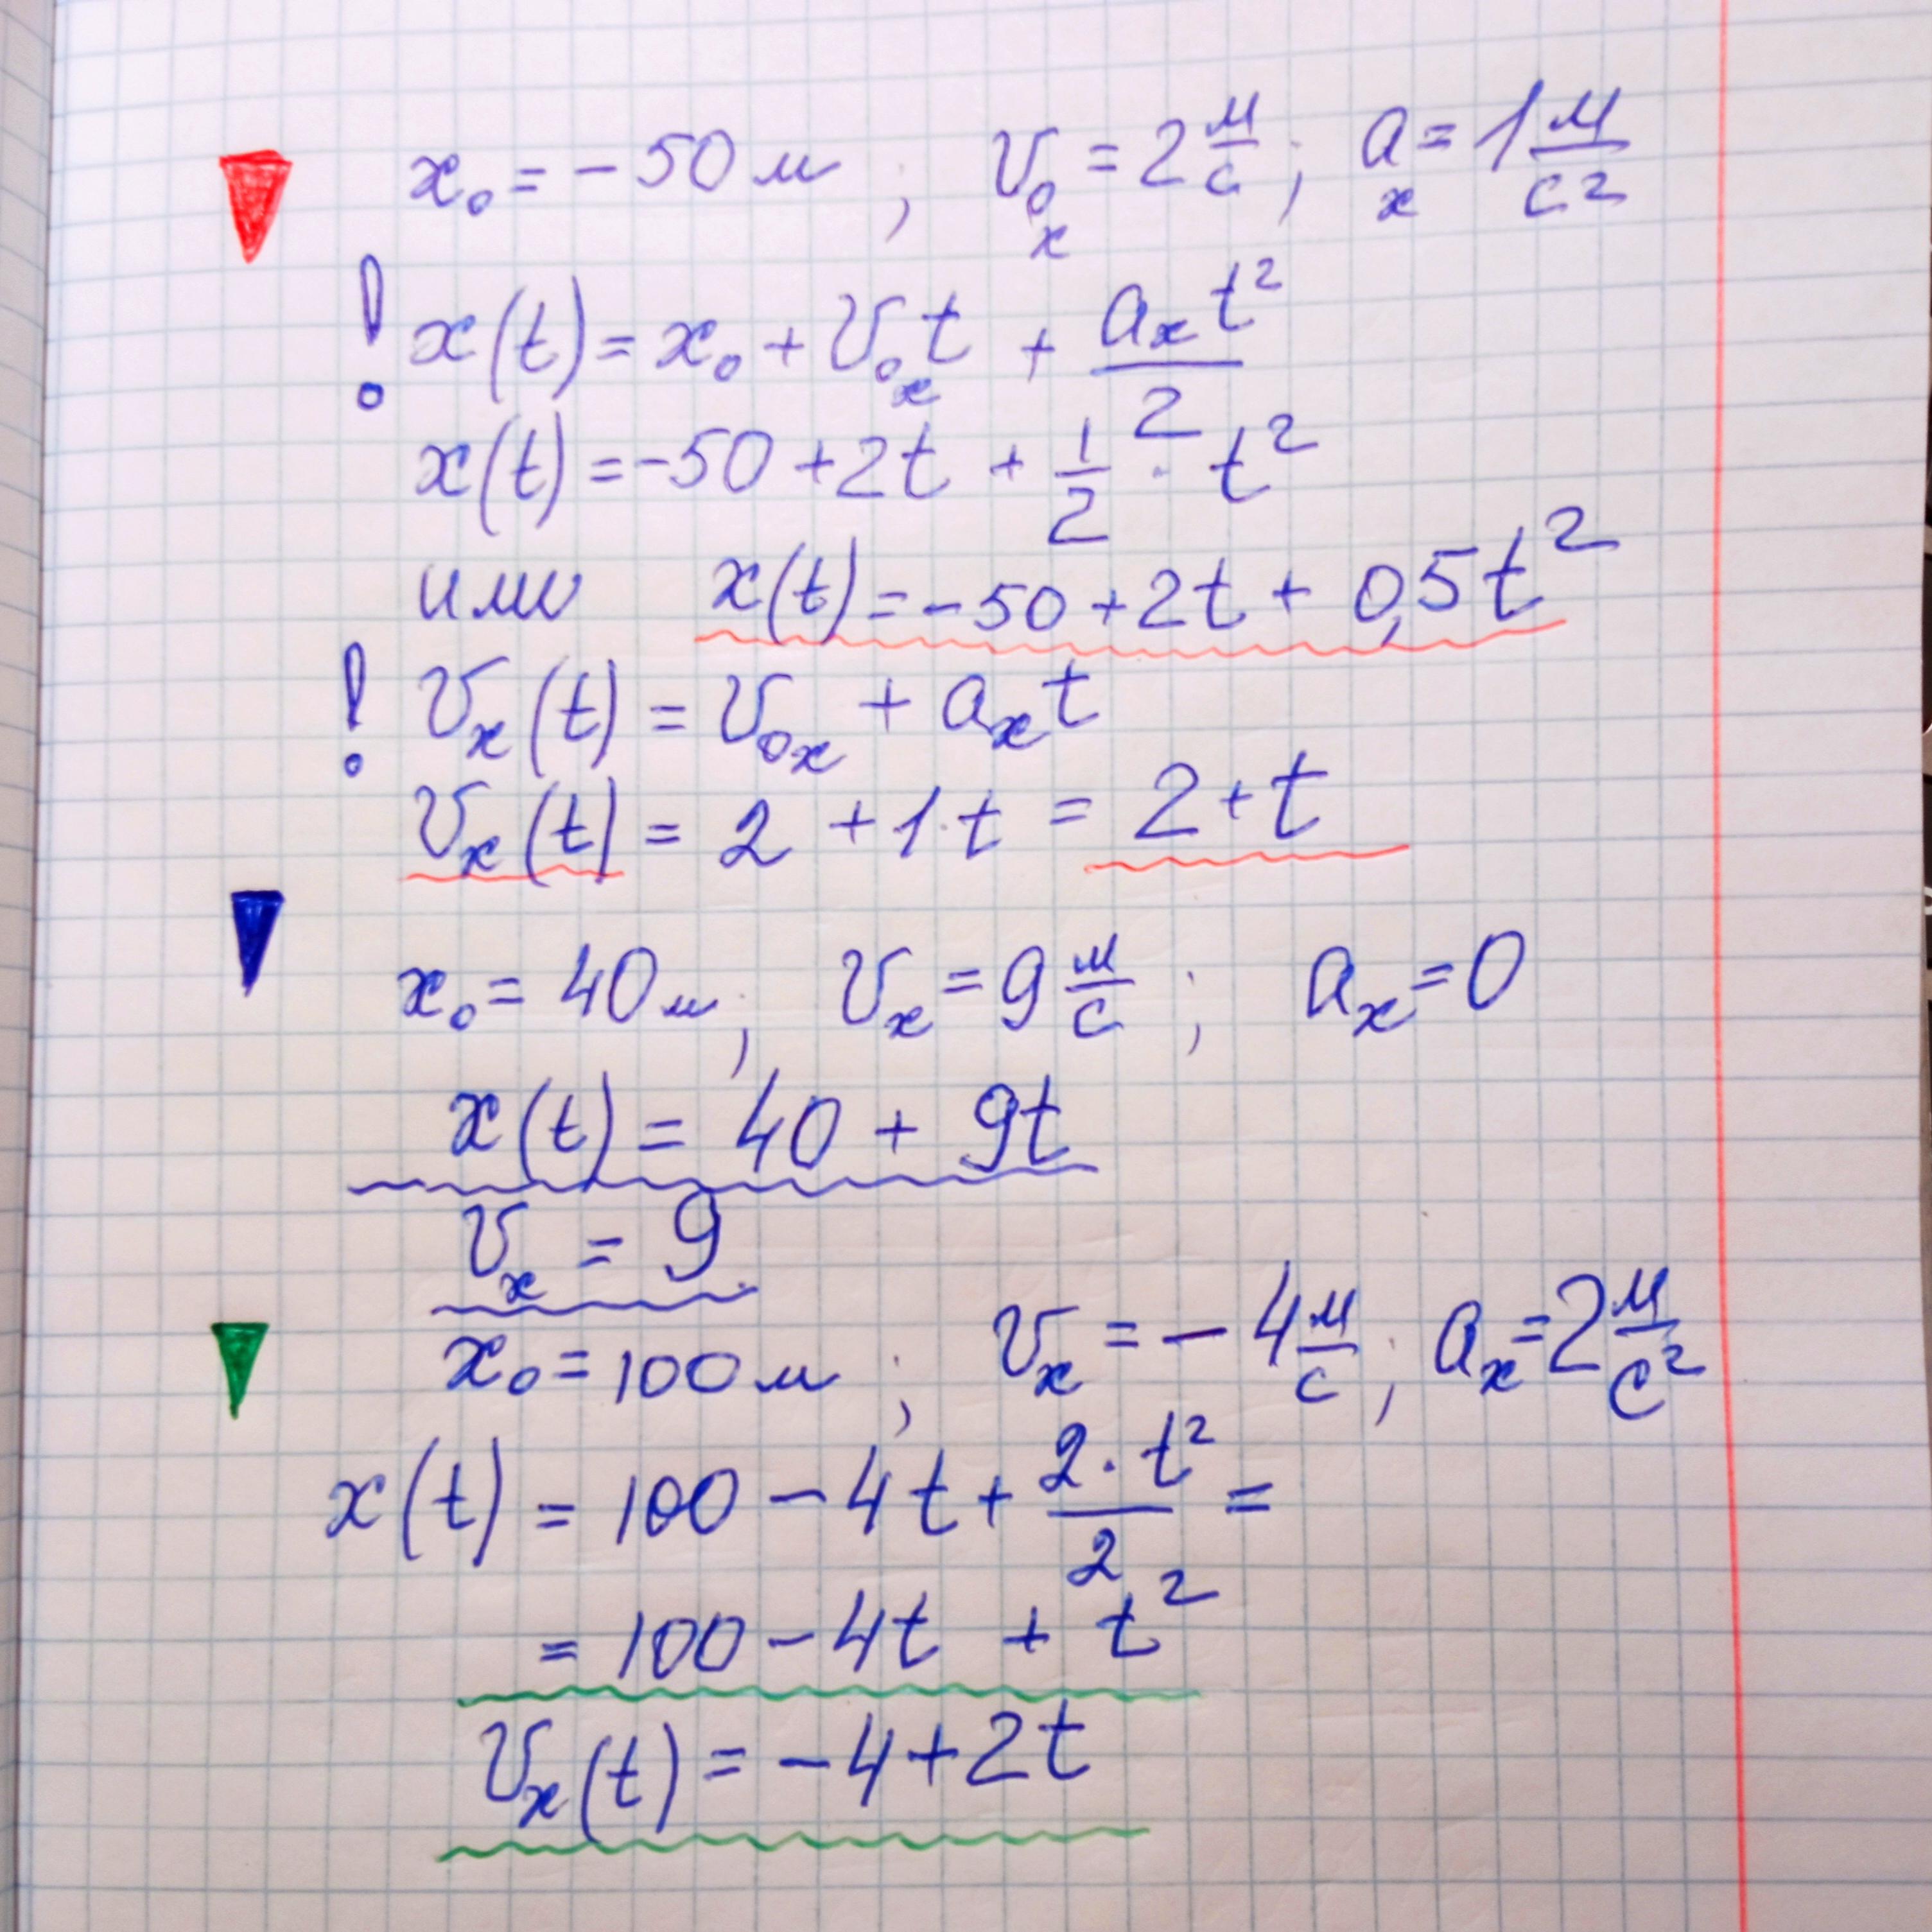 x₀ = -50 м ; v₀ₓ = 2 м/с ; aₓ = 1 м/с²
! x(t) = x₀ + v₀ₓt + aₓt²/2
x(t) = -50 + 2t + 1/2 · t²
или x(t) = -50 + 2t + 0,5t²
! vₓ(t) = v₀ₓ + aₓt
vₓ(t) = 2 + 1·t = 2 + t
x₀ = 40 м ; vₓ = 9 м/с ; aₓ = 0
x(t) = 40 + 9t
vₓ = 9
x₀ = 100 м ; vₓ = -4 м/с ; aₓ = 2 м/с²
x(t) = 100 - 4t + 2·t²/2 =
= 100 - 4t + t²
vₓ(t) = -4 + 2t